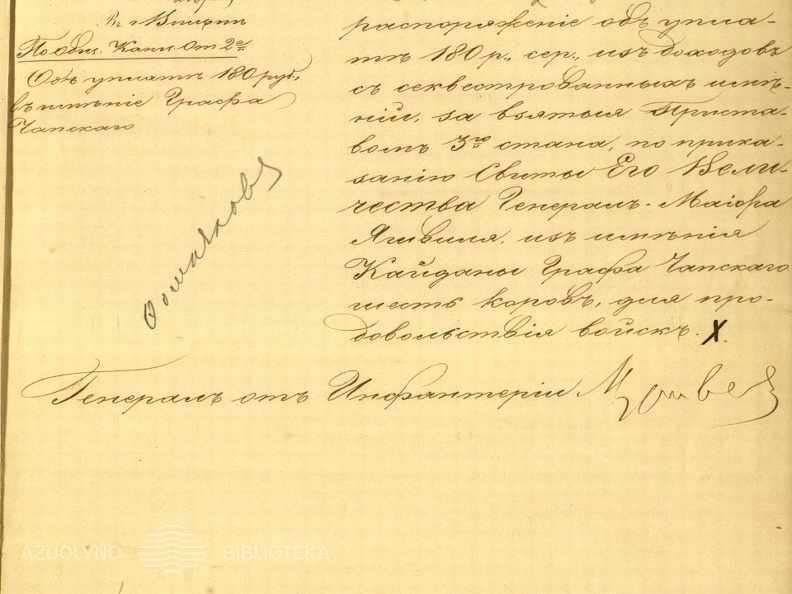 Въ г. Вильнѣ
По Общ. Канц. От. 2е
Объ уплатѣ 180 руб.
въ имѣніе Графа
Чапскаго
распоряженіе объ упла-
тѣ 180 р. сер., изъ доходовъ
съ секвестрованныхъ имѣ-
ній, за взятыя Приста-
вомъ 3го стана, по прика-
занію Свиты Его Вели-
чества Генералъ-Маіора
Яшвиля, изъ имѣнія
Кайданы Графа Чапскаго
шесть коровъ, для про-
довольствія войскъ. X.
Генералъ отъ Инфантеріи
AŽUOLYNO BIBLIOTEKA